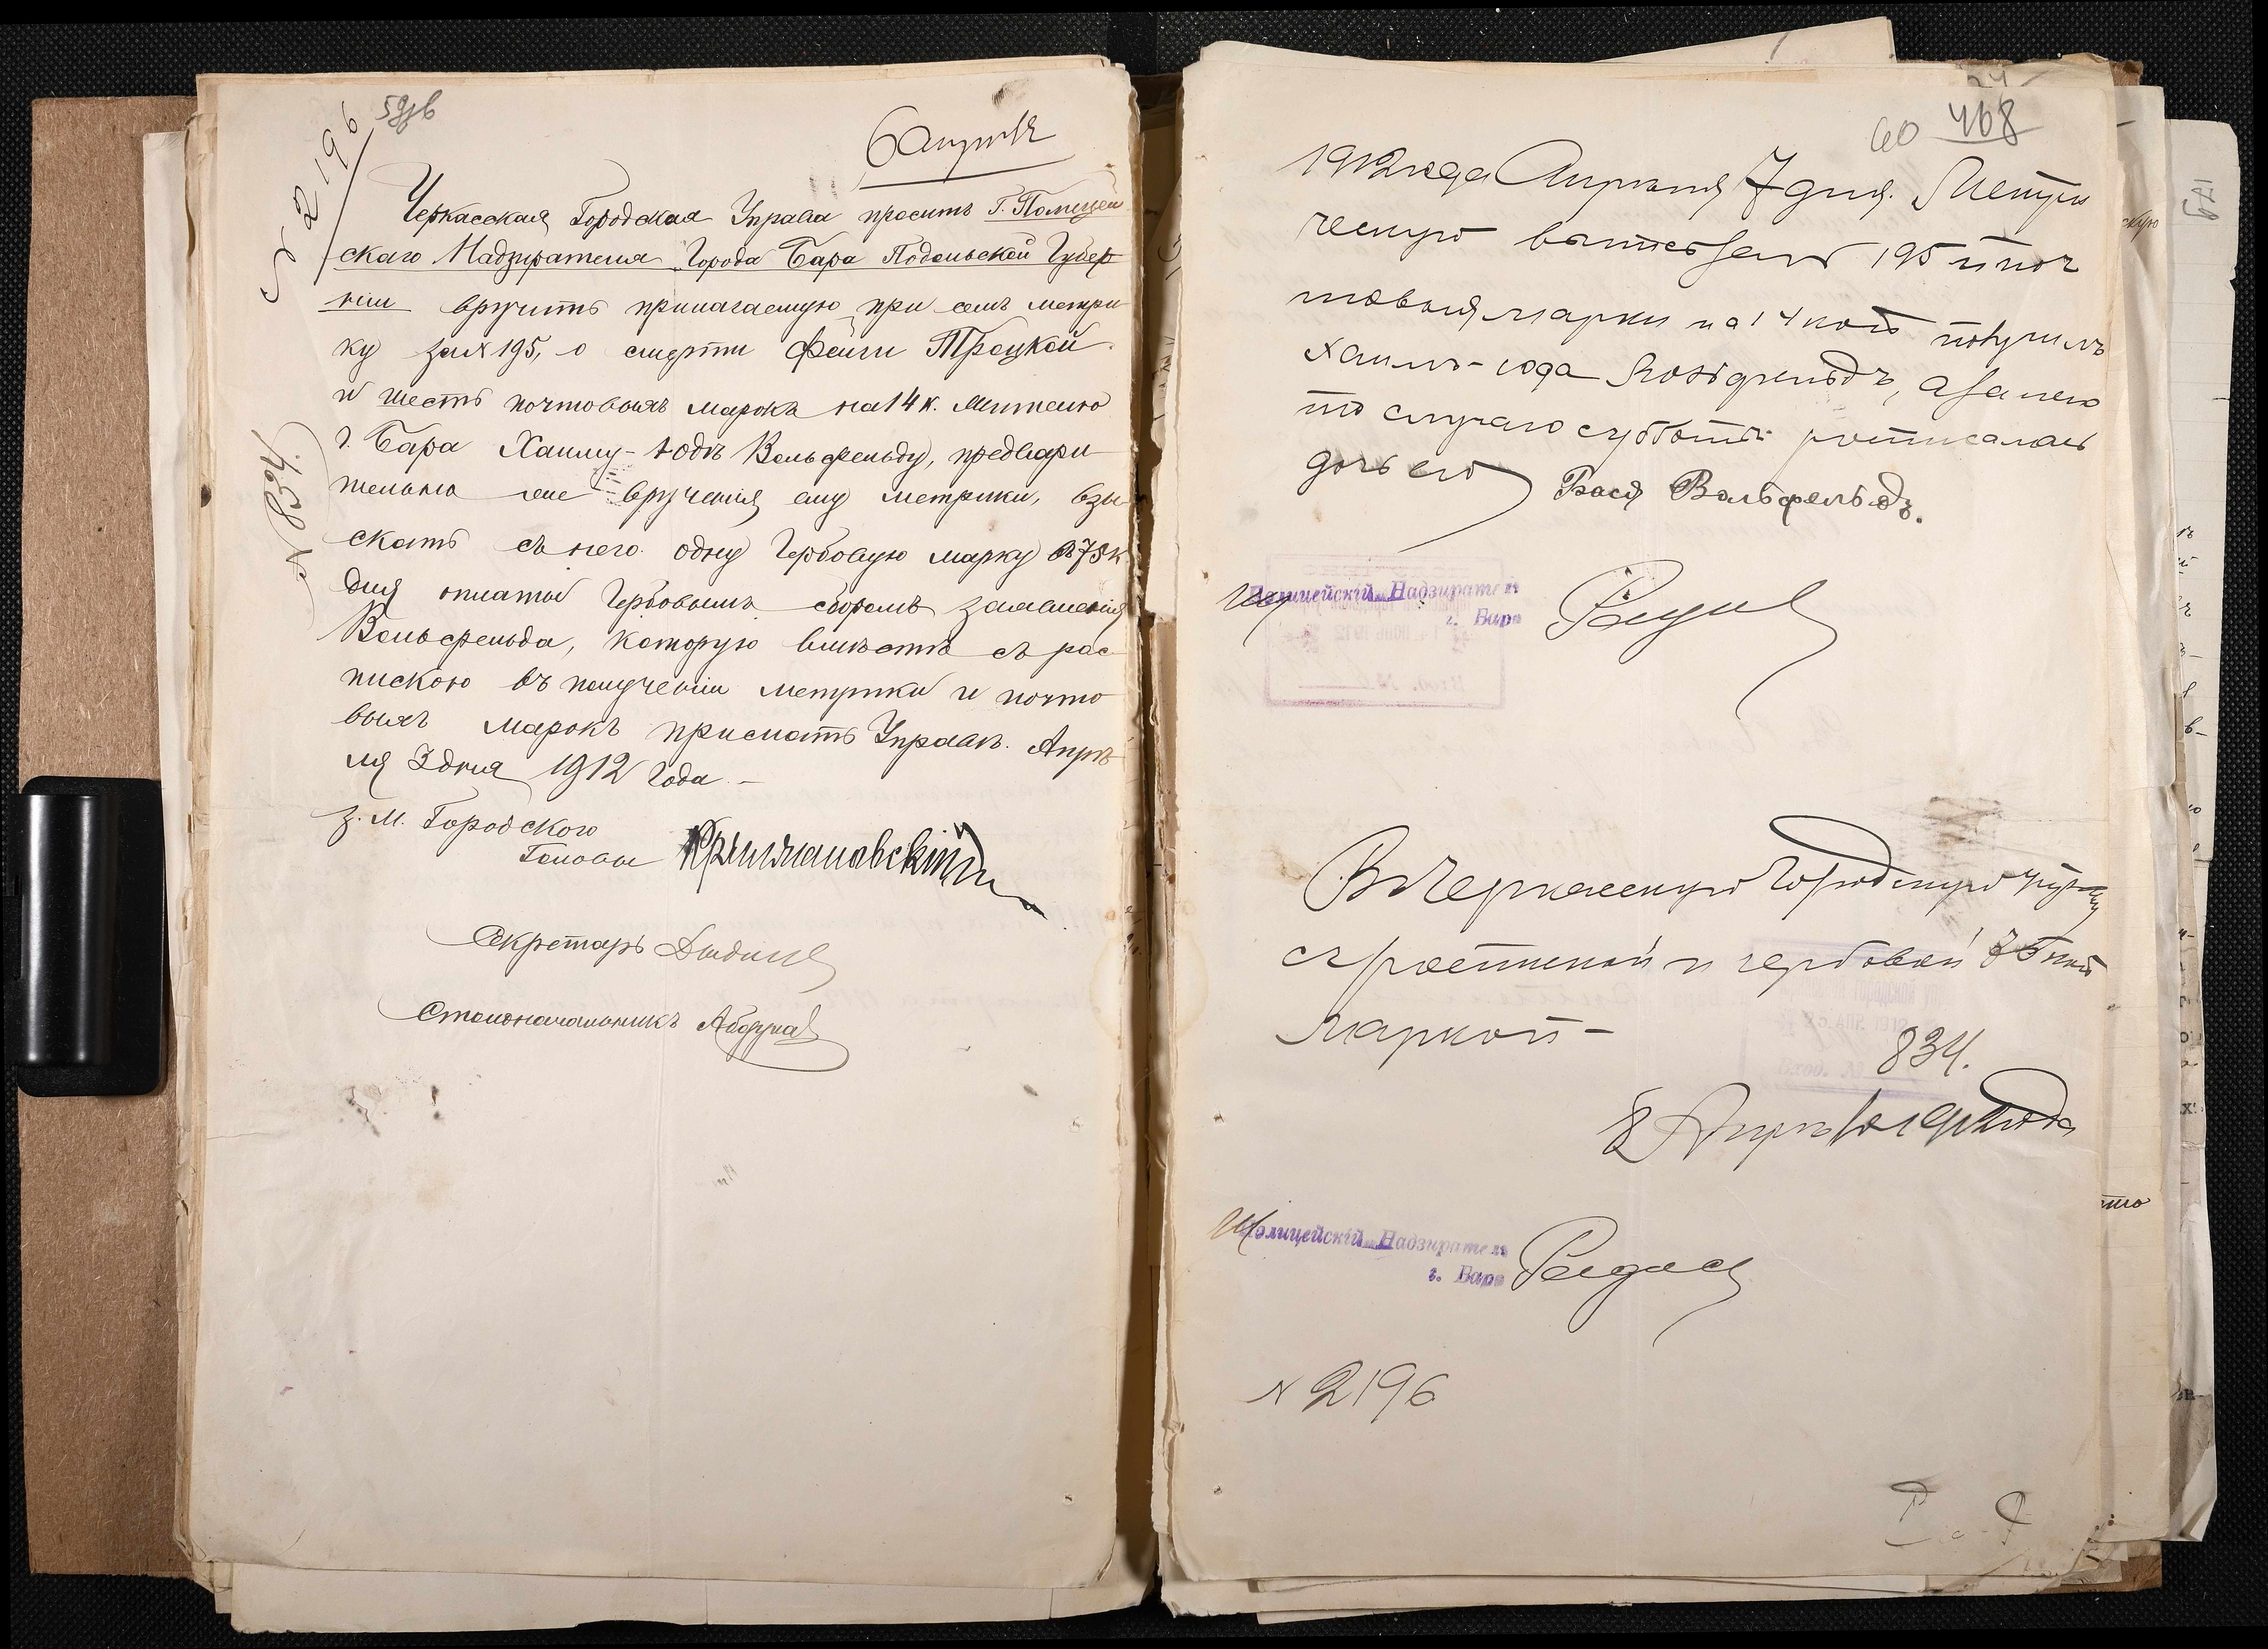 № 2196
59об
6 Апр 1912
Черкасская Городская Управа проситъ Г. Полицей
скаго Надзирателя Города Бара Подольской Губер
ніи вручить прилагаемую при семъ метри
ку за № 195, о смерти Фейги Троцкой
и шесть почтовыхъ марокъ на 14 к. жителю
г. Бара Хаиму-Юдѣ Вольфельду, предвари
тельно же вручения ему метрики, взы
скать съ него одну гербовую марку въ 75 к
для оплаты гербовымъ сборомъ заявленія
Вольфельда, которую вмѣстѣ съ рас
пискою въ полученіи метрики и почто
выхъ марокъ прислать Управѣ. Апрѣ
ля 3 дня 1912 года. —
№ 834.
З. М. Городского
Головы
Секретарь
Столоначальникъ
60 468
1912 года Апрѣля 7 дня. Метри
ческую выпись за № 195 и поч
товыя марки на 14 коп получилъ
Хаимъ-Юда Вольфельдъ, а за него
по случаю субботы росписалась
дочь его Бася Вольфельдъ.
Полицейскій Надзиратель
г. Бара
Въ Черкасскую Городскую Управу
съ роспиской и гербовой 75 коп
маркой —
834.
8 Апрѣля 1912 года
Полицейскій Надзиратель
г. Бара
№ 2196